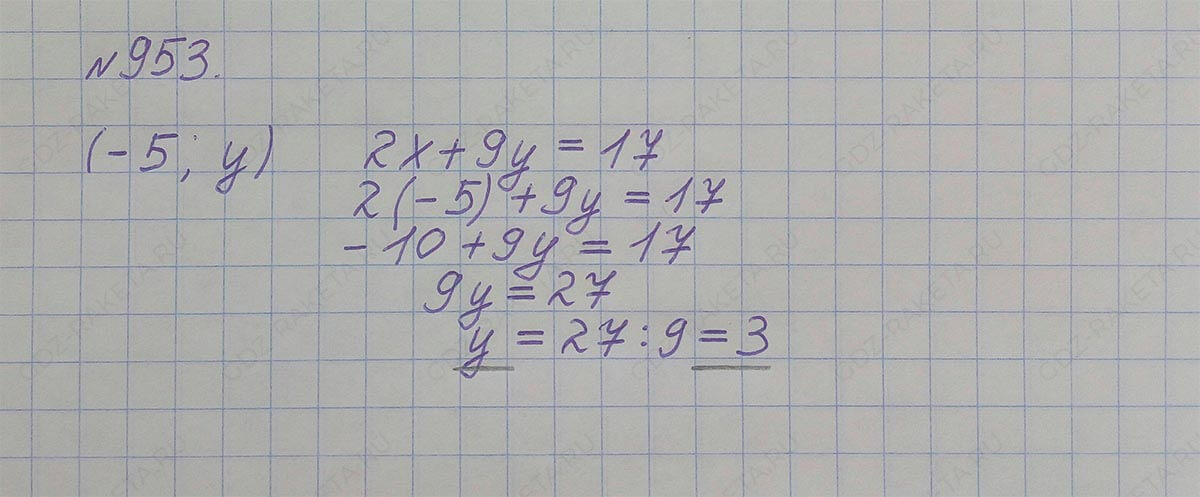 №953.
(-5; y) 2x+9y=17
2(-5)+9y=17
-10+9y=17
9y=27
y=27:9=3
GDZ-RAKETA.RU